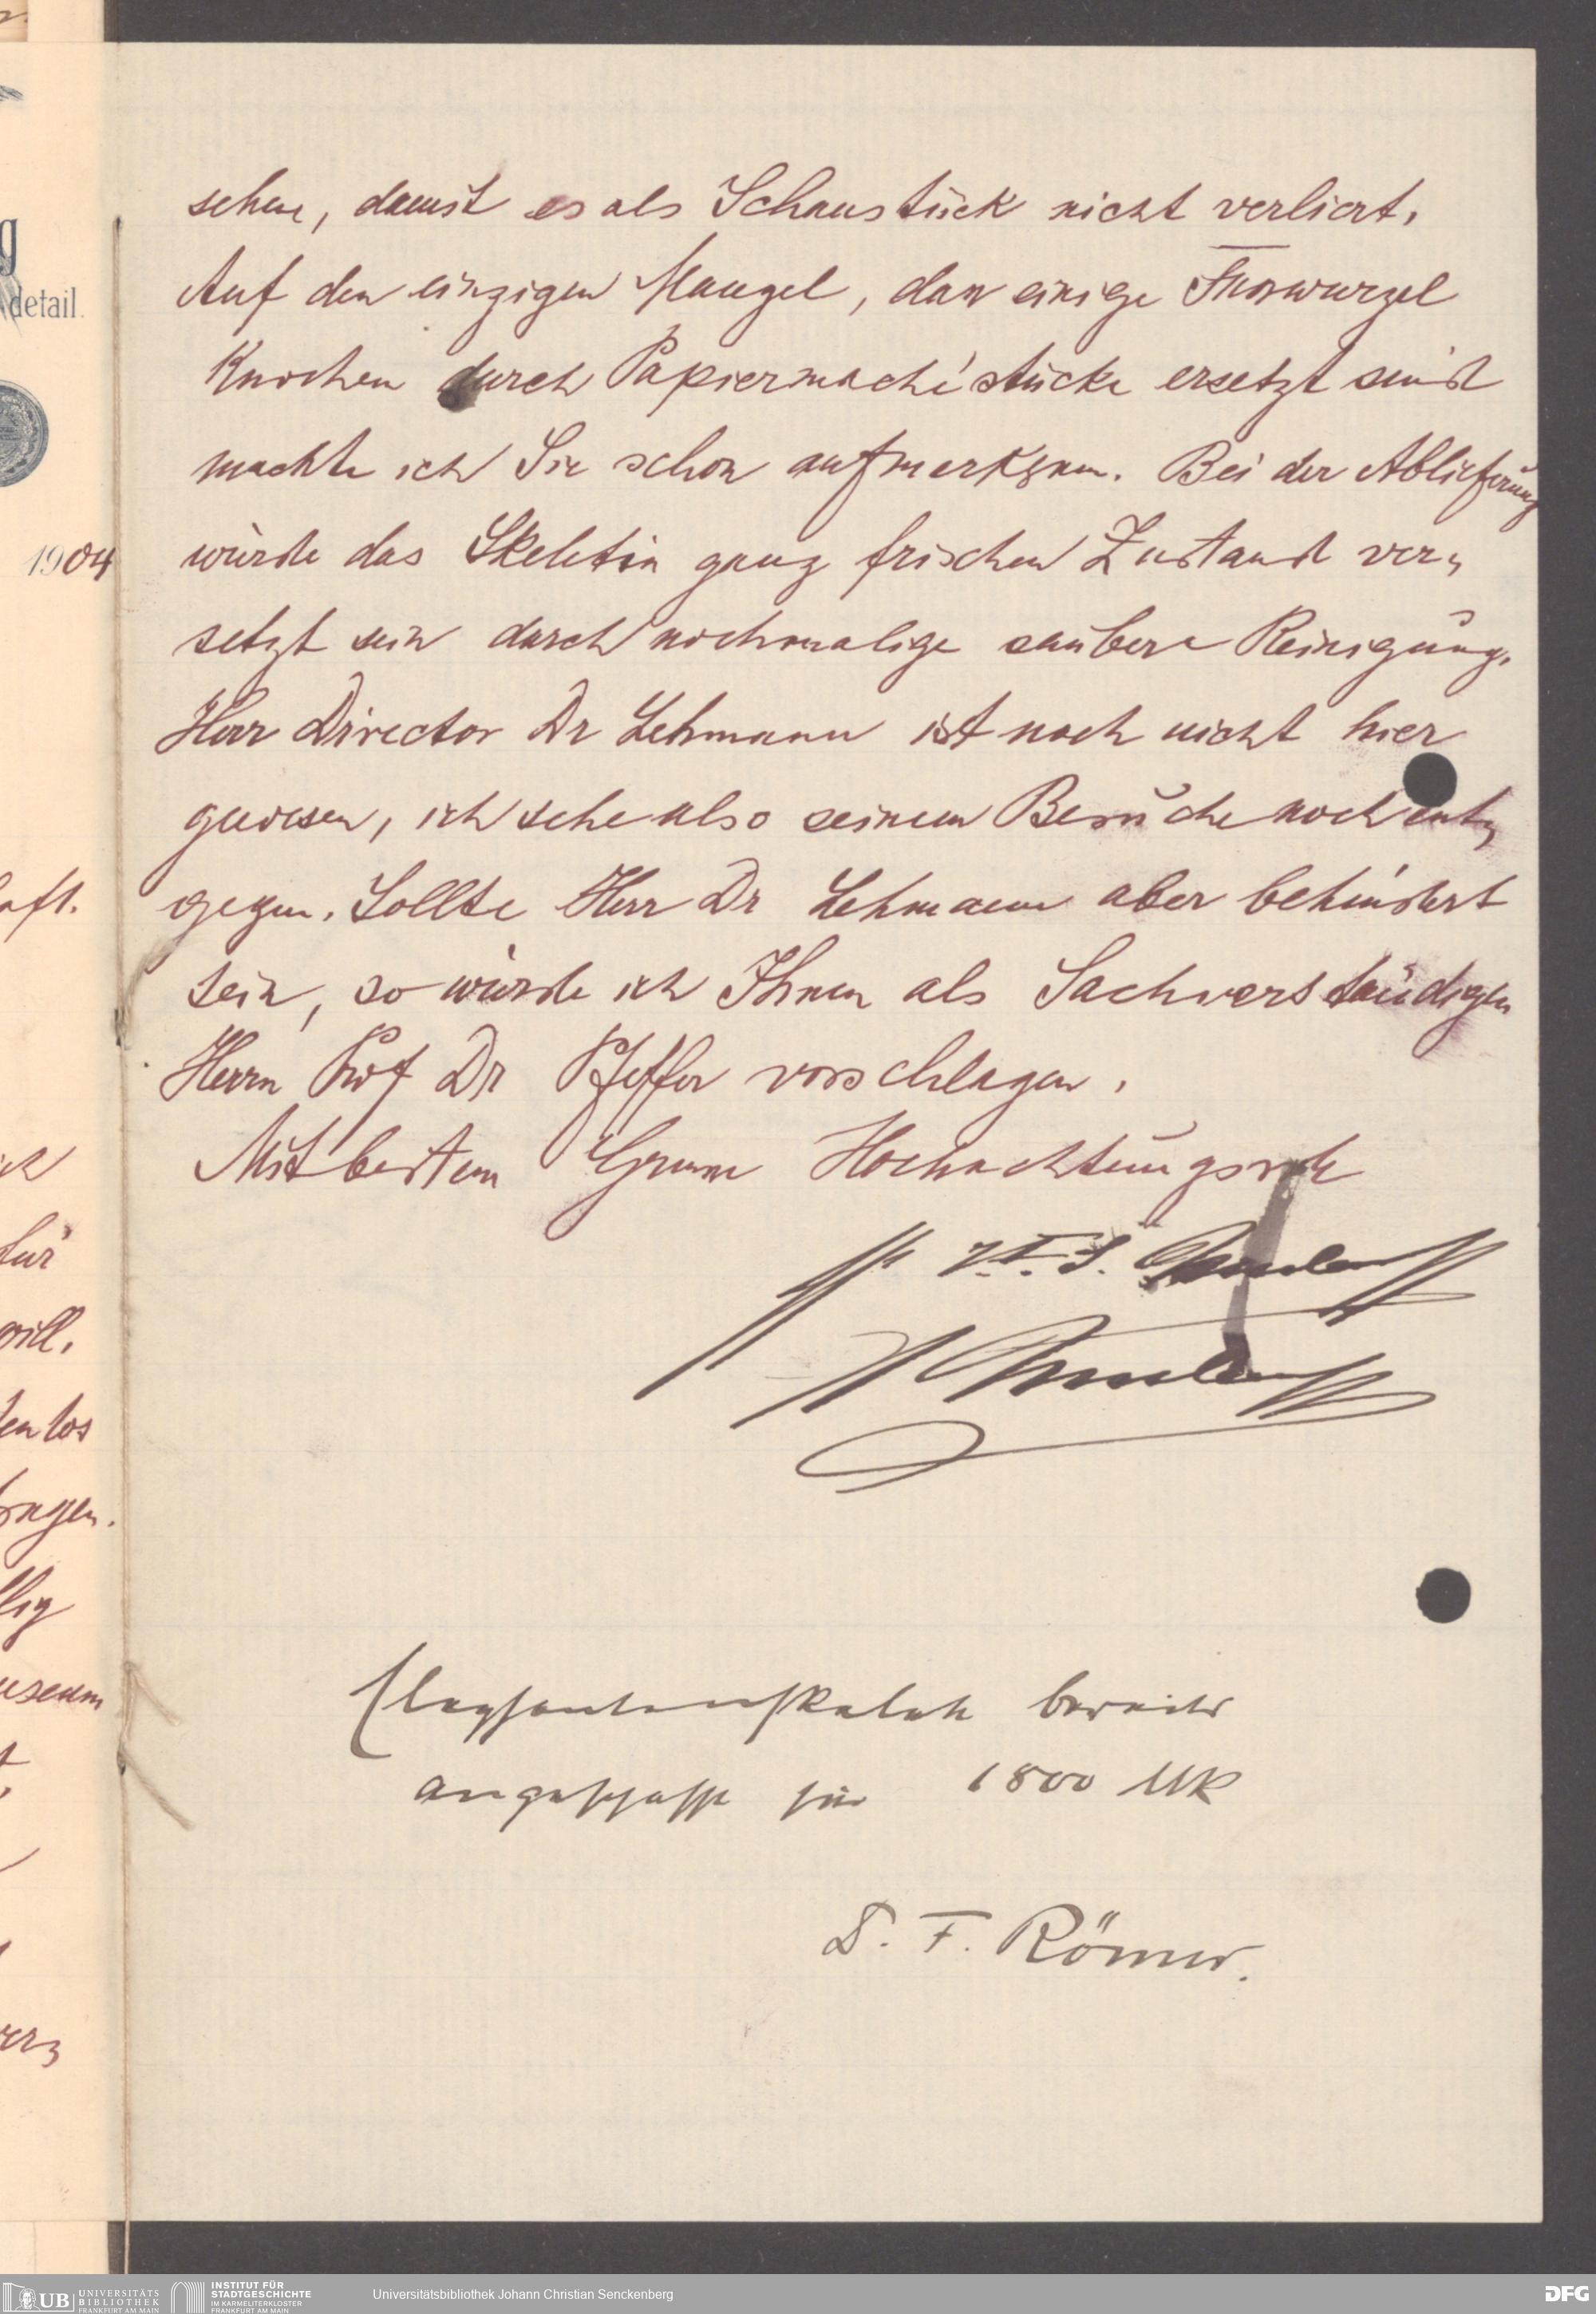 sehen, damit es als Schaustück nicht verliert.
Auf den einzigen Mangel, dass einige Fusswurzel
Knochen durch Papiermaché stücke ersetzt sind
machte ich Sie schon aufmerksam. Bei der Ablieferung
würde das Skelet in ganz frischen Zustand ver,
setzt sein durch nochmalige saubere Reinigung.
Herr Director Dr Lehmann ist noch nicht hier
gewesen, ich sehe also seinem Besuche noch ent,
gegen. Sollte Herr Dr Lehmann aber behindert
sein, so würde ich Ihnen als Sachverständigen
Herrn Prof Dr Pfeffer vorschlagen.
Mit bestem Gruss Hochachtungsvoll
J. F. G. Umlauff
Umlauff
Elephantenskelett bereits
angeschafft für 1800 Mk
D. F. Römer.
g
detail.
1904
aft.
ich
für
will,
ten los
fragen.
llig
useum
UB UNIVERSITÄTS
BIBLIOTHEK
FRANKFURT AM MAIN
INSTITUT FÜR
STADTGESCHICHTE
IM KARMELITERKLOSTER
FRANKFURT AM MAIN
Universitätsbibliothek Johann Christian Senckenberg
DFG